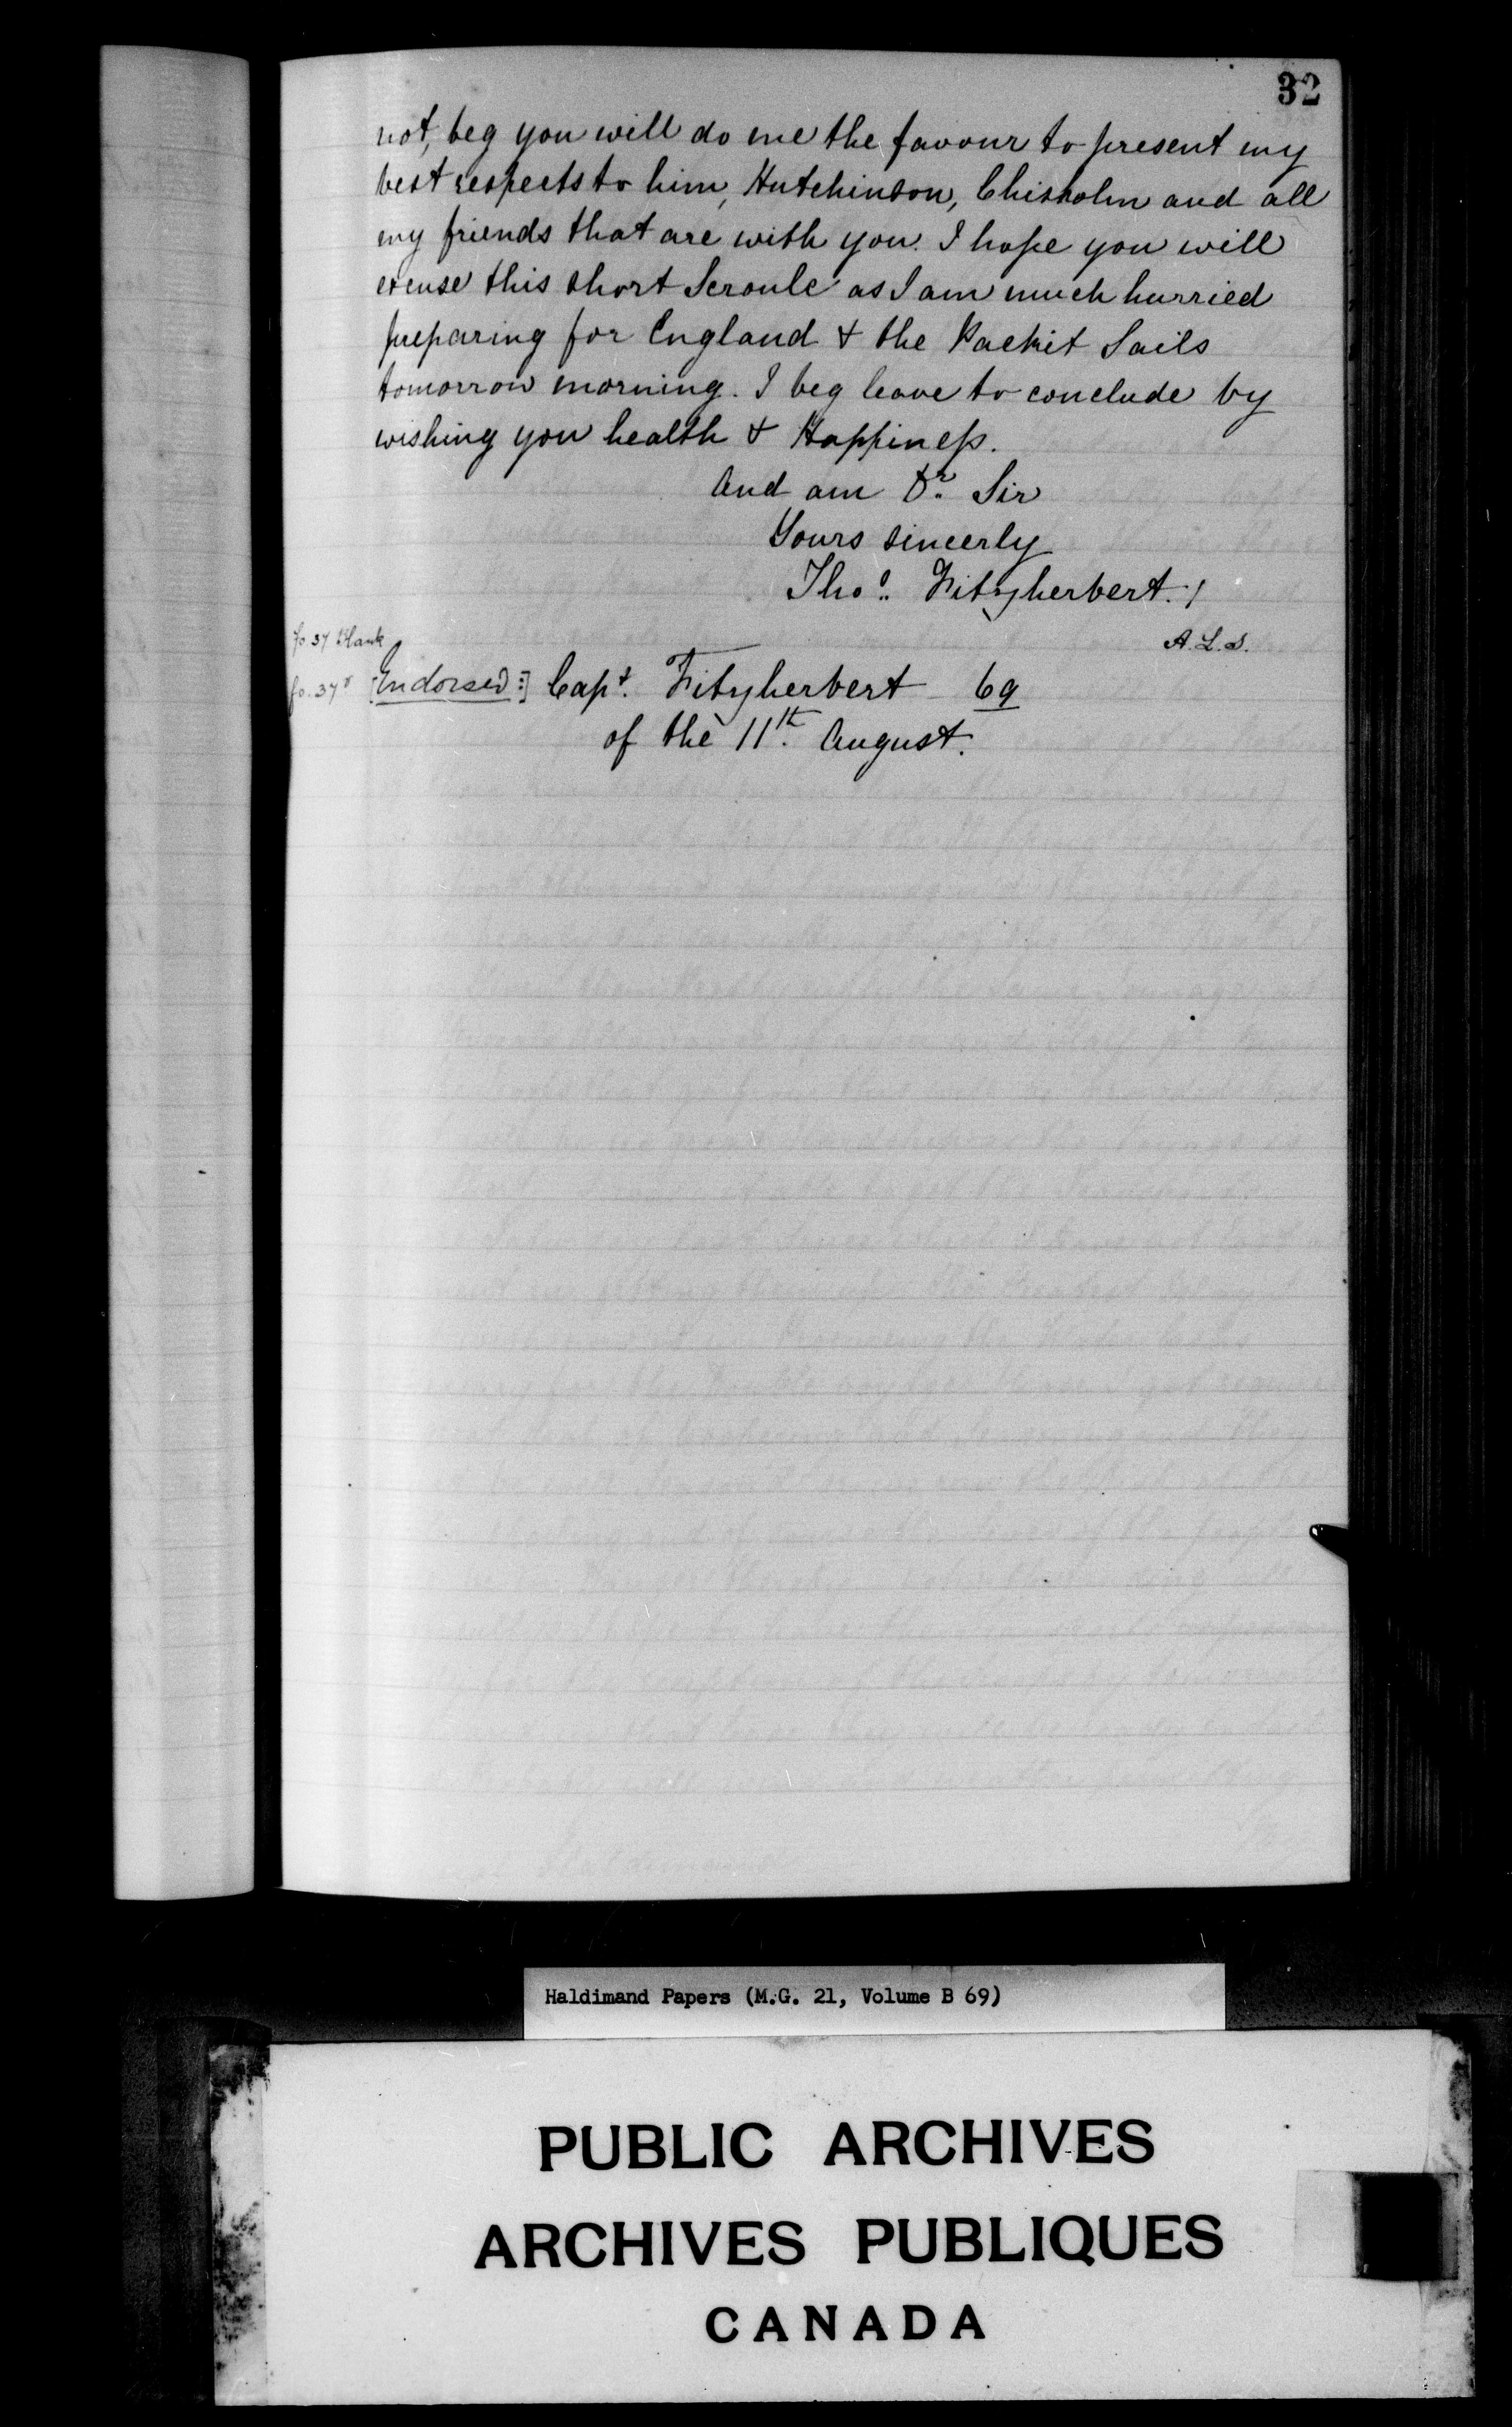 32
not, beg you will do me the favour to present my
best respects to him, Hutchinson, Chisholm and all
my friends that are with you. I hope you will
excuse this short Scroule as I am much hurried
preparing for England & the Packit Sails
tomorrow morning. I beg leave to conclude by
wishing you health & Happiness.
And am Dr. Sir
Yours sincerly
Thos. Fitzherbert./
A.L.S.
fo 37 blank
fo. 37v [Endorsed:] Capt. Fitzherbert 69
of the 11th. August.
Haldimand Papers (M.G. 21, Volume B 69)
PUBLIC ARCHIVES
ARCHIVES PUBLIQUES
CANADA